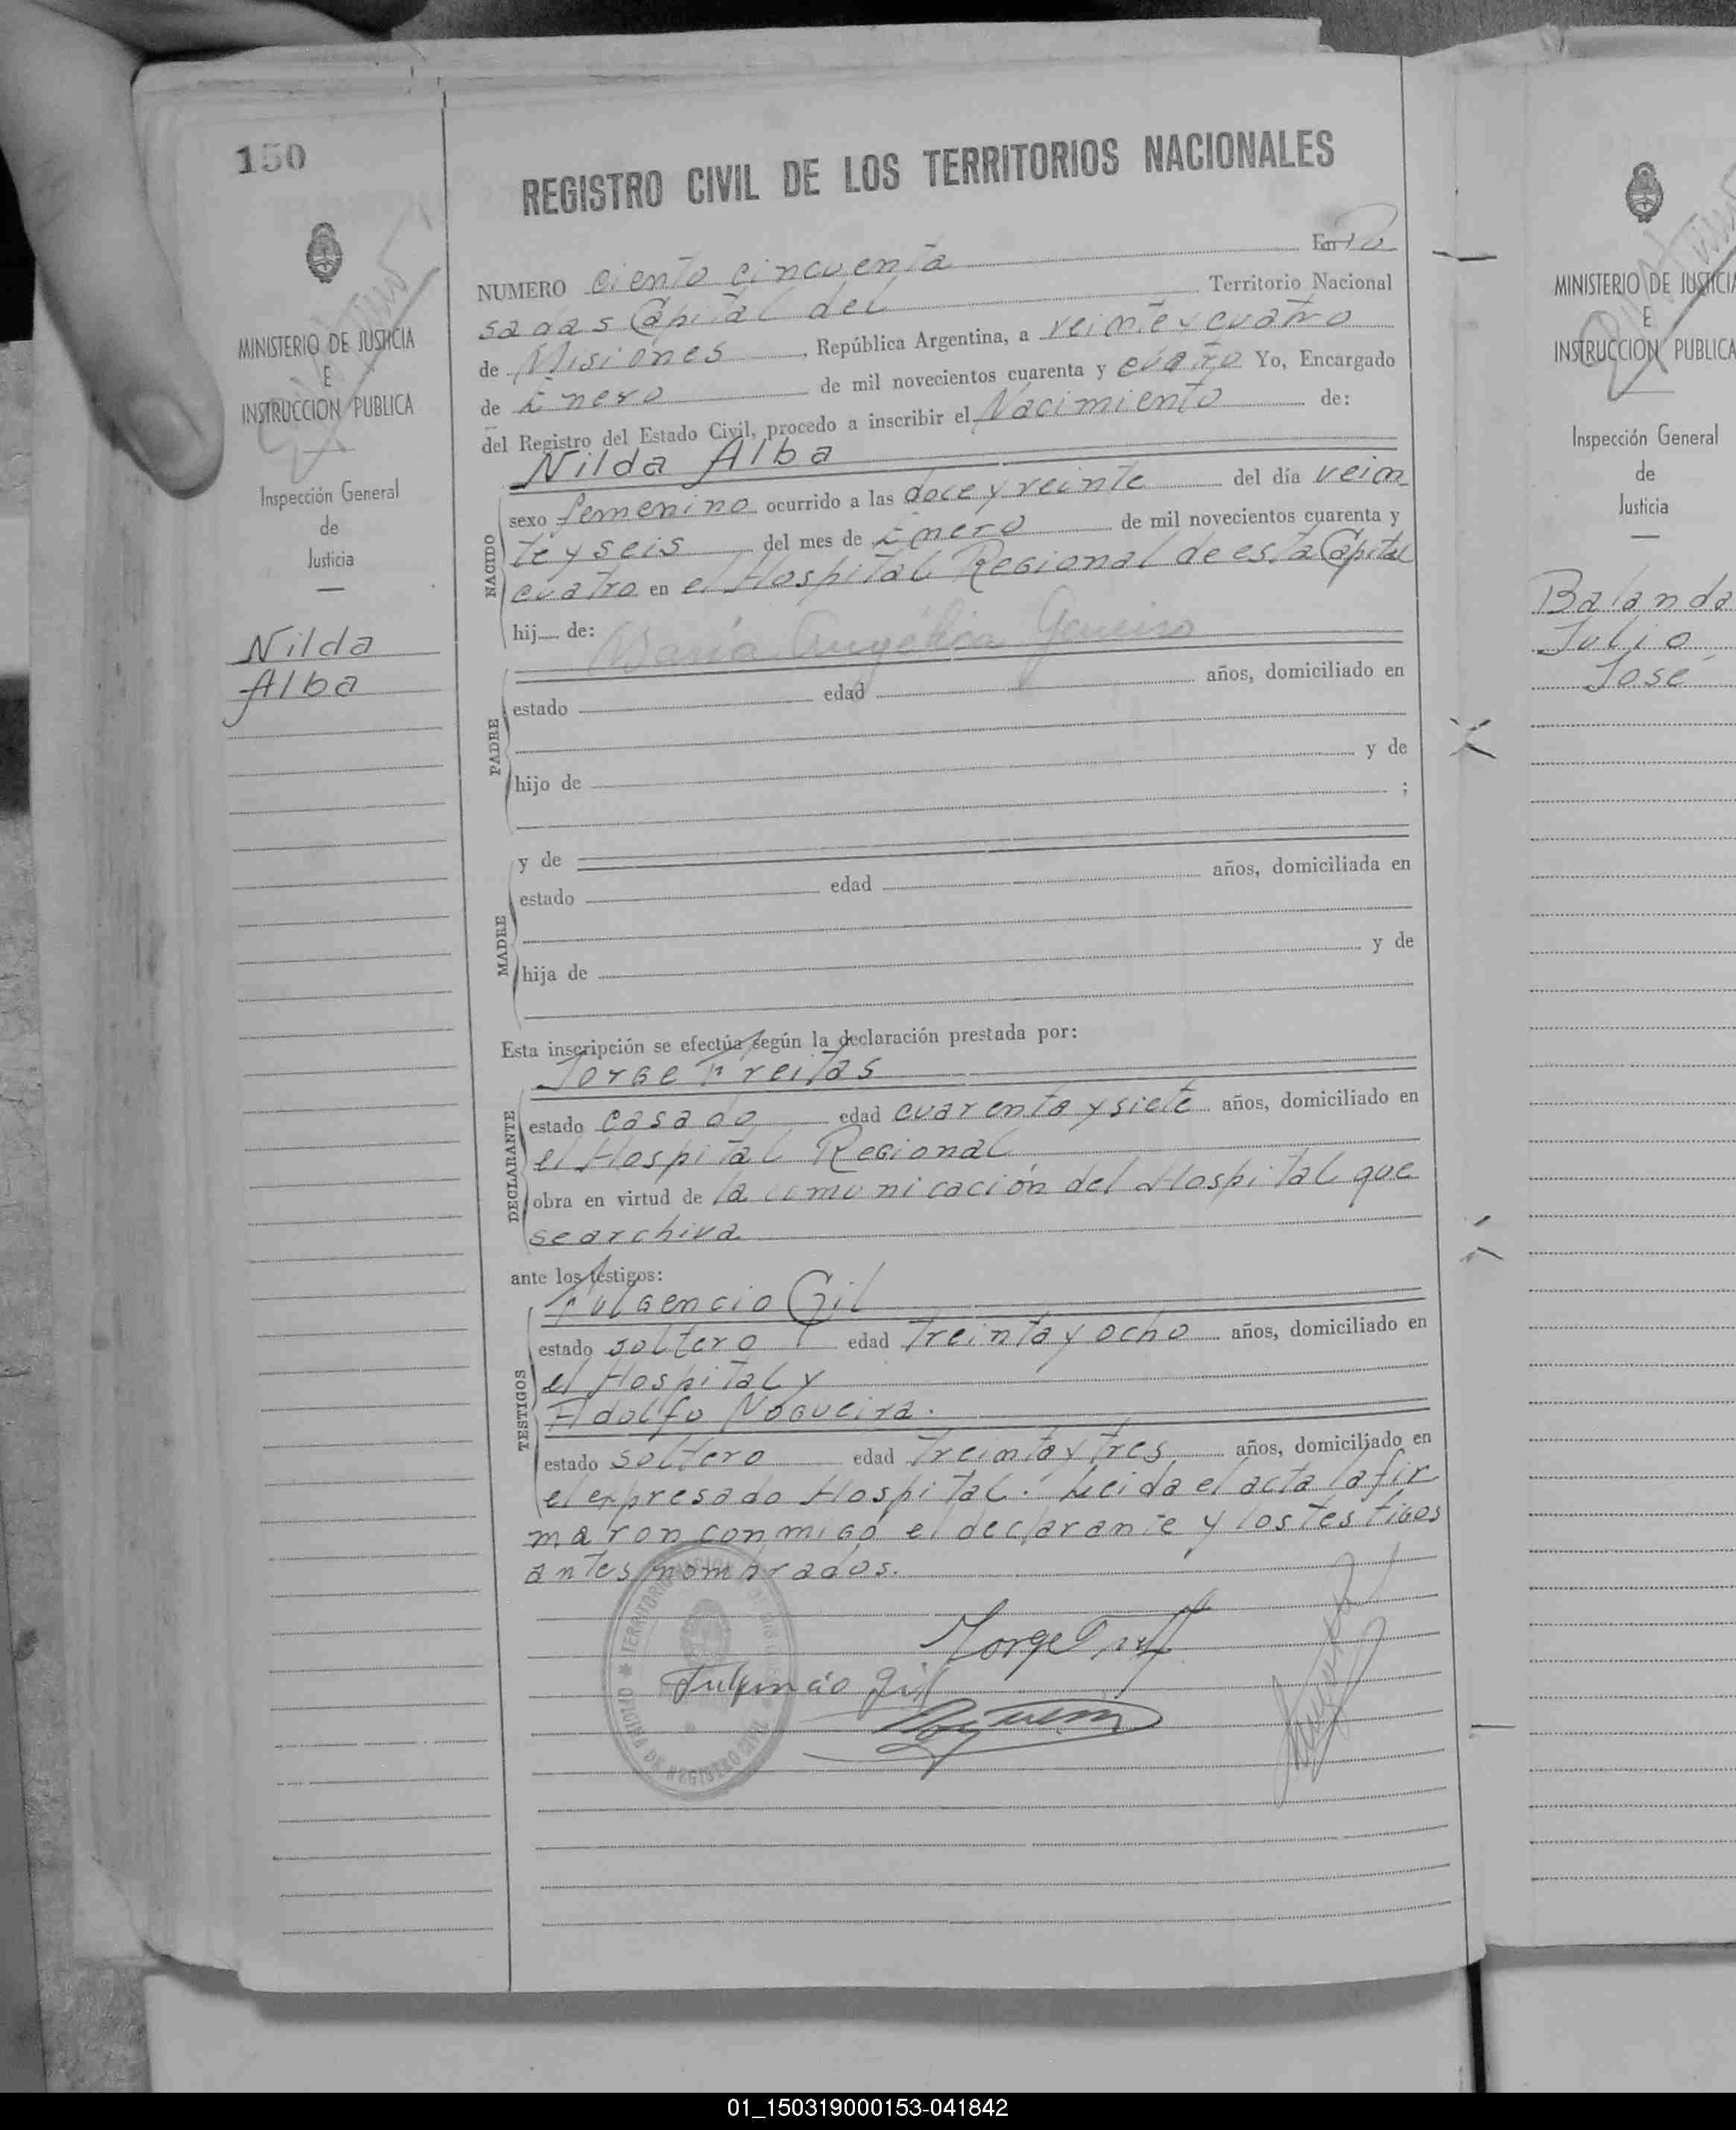 150
MINISTERIO DE JUSTICIA
E
INSTRUCCION PUBLICA
Inspección General
de
Justicia
Nilda
Alba
REGISTRO CIVIL DE LOS TERRITORIOS NACIONALES
NUMERO ciento cincuenta En Po
sadas Capital del Territorio Nacional
de Misiones, República Argentina, a veinte y cuatro
de Enero de mil novecientos cuarenta y cuatro Yo, Encargado
del Registro del Estado Civil, procedo a inscribir el Nacimiento de:
Nilda Alba
NACIDO
sexo femenino ocurrido a las doce y veinte del día vein
te y seis del mes de Enero de mil novecientos cuarenta y
cuatro en el Hospital Regional de esta Capital
hij de: María Angélica
PADRE
estado edad años, domiciliado en
hijo de y de
;
MADRE
y de
estado edad años, domiciliada en
hija de y de
Esta inscripción se efectúa según la declaración prestada por:
Jorge Freitas
DECLARANTE
estado casado edad cuarenta y siete años, domiciliado en
el Hospital Regional
obra en virtud de la comunicación del Hospital que
se archiva
ante los testigos:
Fulgencio Gil
TESTIGOS
estado soltero edad treinta y ocho años, domiciliado en
el Hospital y
Adolfo Nogueira.
estado soltero edad treinta y tres años, domiciliado en
el expresado Hospital. Leida el acta la fir
maron conmigo el declarante y los testigos
antes nombrados.
Jorge
Fulgencio Gil
OFICINA DE REGISTRO CIVIL
MINISTERIO DE JUSTICIA
E
INSTRUCCION PUBLICA
Inspección General
de
Justicia
Balanda
Julio
José
01_150319000153-041842